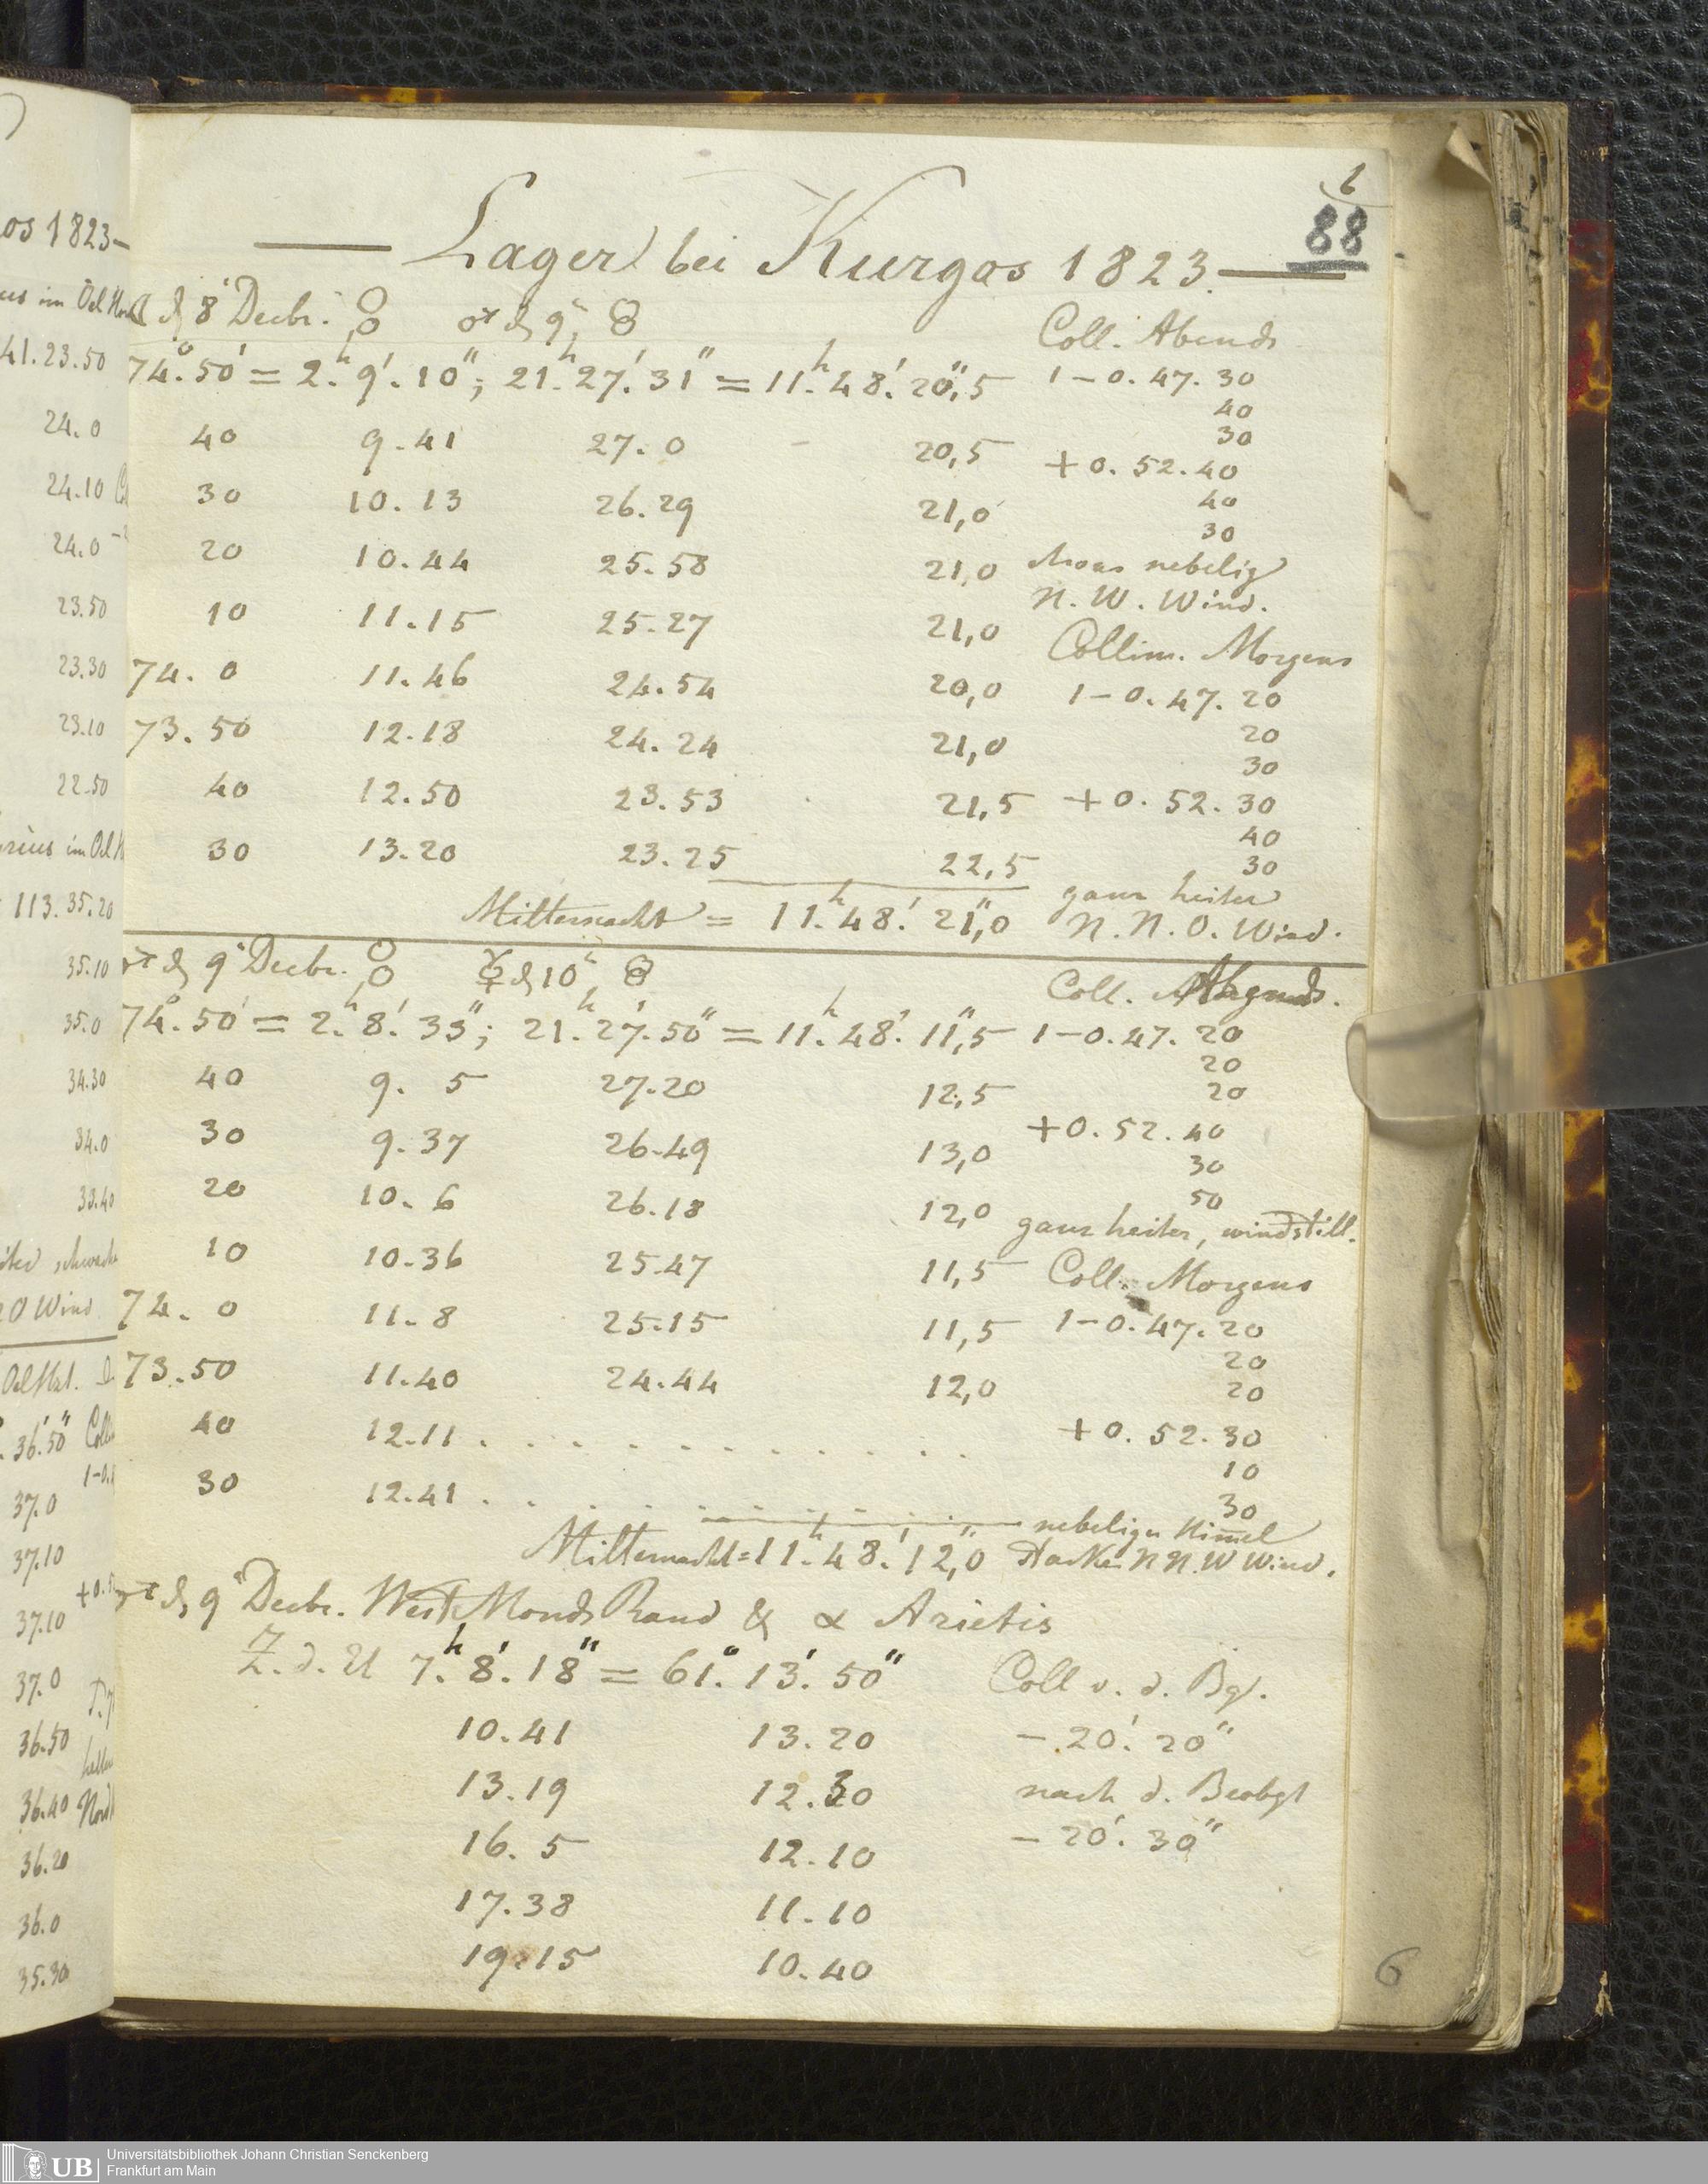 6
88
— Lager bei Kurgos 1823. —
☾ d 8ⁿ Decbr. ♂ d 9ⁿ
Coll. Abends
74.°50′ = 2.ʰ9′.10″; 21.ʰ27′.31″ = 11.ʰ48′.20″,5 1-0.47.30
40
40 9.41 27.0 - 20,5 30
+0.52.40
30 10.13 26.29 21,0 40
30
20 10.44 25.58 21,0 nebelig
N.W. Wind.
10 11.15 25.27 21,0 Collim. Morgens
74.0 11.46 24.54 20,0 1-0.47.20
73.50 12.18 24.24 21,0 20
30
40 12.50 23.53 21,5 +0.52.30
40
30 13.20 23.25 22,5 30
ganz heiter
Mitternacht = 11.ʰ48′.21″,0 N.N.O. Wind.
♂ d 9ⁿ Decbr. ☿ d 10ⁿ
Coll. Abends.
74.°50′ = 2.ʰ8′.33″; 21.ʰ27′.50″ = 11.ʰ48′.11″,5 1-0.47.20
20
40 9.5 27.20 12,5 20
+0.52.40
30 9.37 26.49 13,0 30
50
20 10.6 26.18 12,0 ganz heiter, windstill.
10 10.36 25.47 11,5 Coll. Morgens
74.0 11.8 25.15 11,5 1-0.47.20
20
73.50 11.40 24.44 12,0 20
40 12.11 . . . . . . . . . . +0.52.30
10
30 12.41 . . . . . . . . . . 30
nebeliger Himel
Mitternacht = 11.ʰ48′.12″,0 starker N N.W Wind.
♂ d 9ⁿ Decbr. West Monds Rand & α Arietis
Z. d. U 7.ʰ8′.18″ = 61.°13′.50″ Coll v. d. Bgt.
10.41 13.20 -20′.20″
13.19 12.30 nach d. Beobgt
16.5 12.10 -20′.30″
17.38 11.10
19.15 10.40
6
os 1823-
41.23.50
24.0
24.10
24.0
23.50
23.30
23.10
22.50
113.35.20
35.10
35.0
34.30
34.0
33.40
O Wind
36′.50″
37.0
37.10
37.10
37.0
36.50
36.40
36.20
36.0
35.30
UB
Universitätsbibliothek Johann Christian Senckenberg
Frankfurt am Main